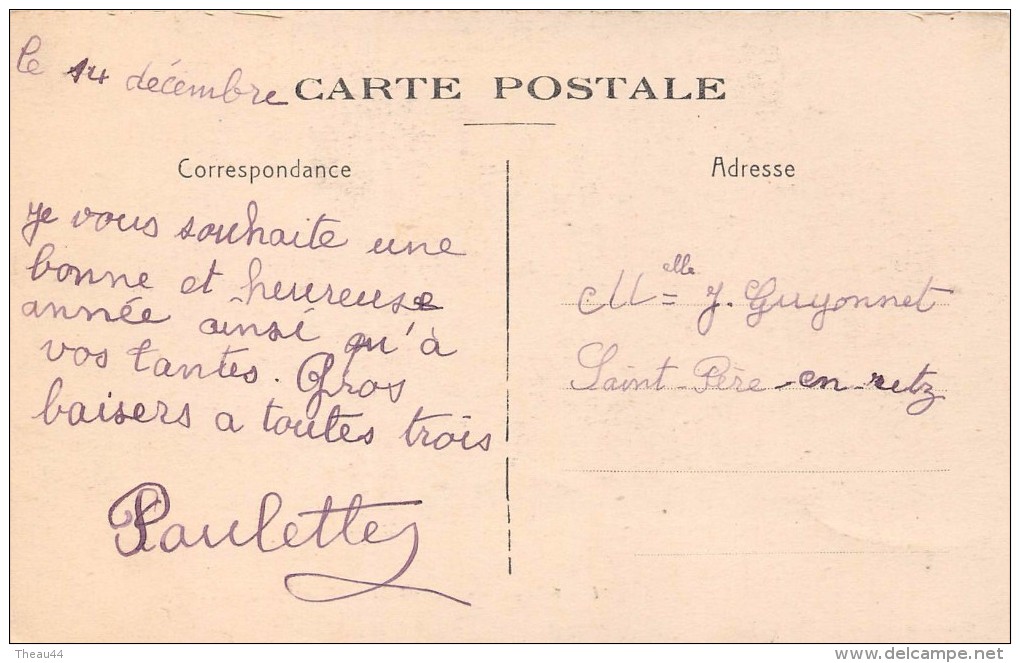 le 14 décembre
CARTE POSTALE
Correspondance
je vous souhaite une
bonne et heureuse
année ainsi qu'à
vos tantes. Gros
baisers a toutes trois
Paulette
Adresse
Melle J. Guyonnet
Saint-Père-en-retz
Theau44
delcampe.net